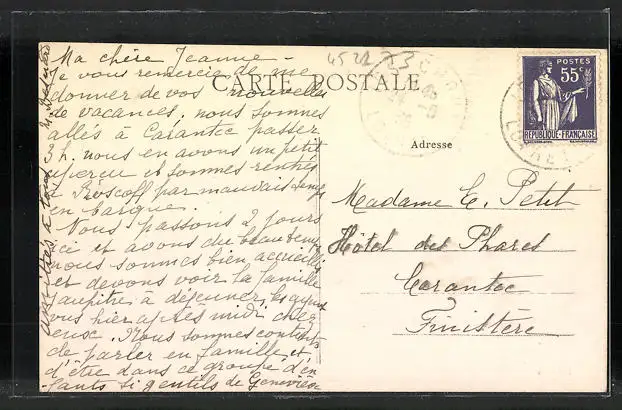 Ma chère Jeanne -
Je vous remercie de me
donner de vos nouvelles
de vacances. nous sommes
allés à Carantec passer
3 h. nous en avons un petit
aperçu et sommes rentrés
à Roscoff par mauvais temps
en barque.
Nous passons 2 jours
ici et avons du beau temps
nous sommes bien accueillis
et devons voir la famille
à déjeuner,
vous hier après midi chez
eux. Nous sommes contents
de parler en famille et
d'être dans ce groupe d'en
fants si gentils de Geneviève
à tous
CARTE POSTALE
Adresse
Madame C. Petit
Hôtel des Phares
Carantec
Finistère
POSTES
55c
REPUBLIQUE-FRANÇAISE